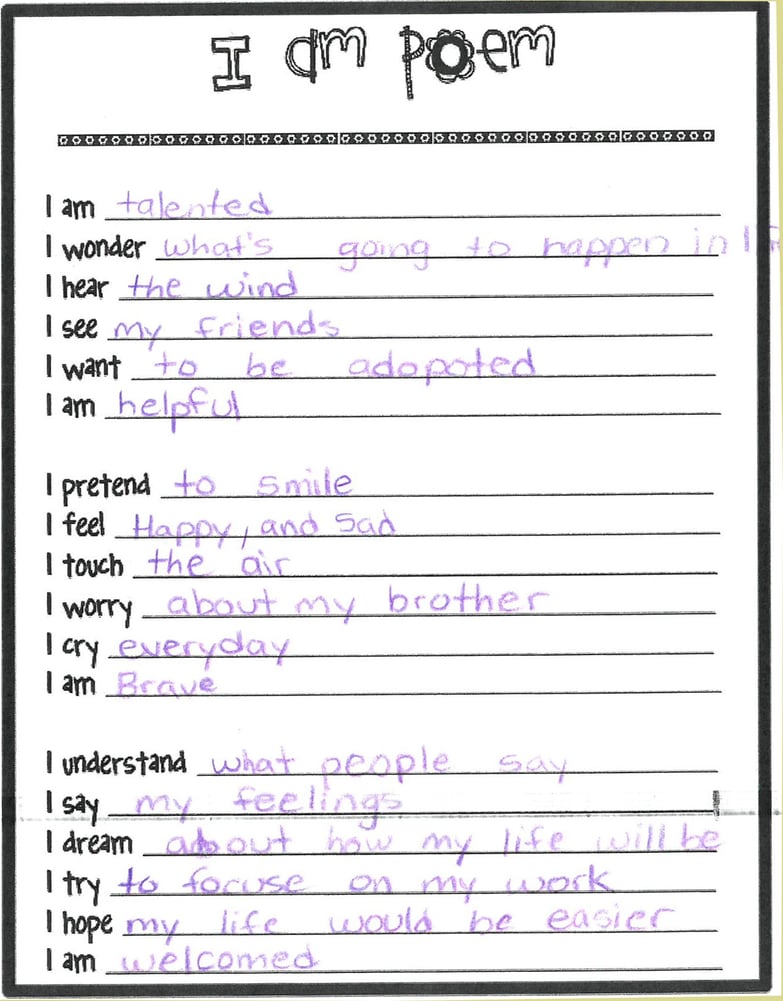 I am poem
I am talented
I wonder what's going to happen in lif
I hear the wind
I see my friends
I want to be adopoted
I am helpful
I pretend to smile
I feel Happy, and Sad
I touch the air
I worry about my brother
I cry everyday
I am Brave
I understand what people say
I say my feelings
I dream about how my life will be
I try to focuse on my work
I hope my life would be easier
I am welcomed